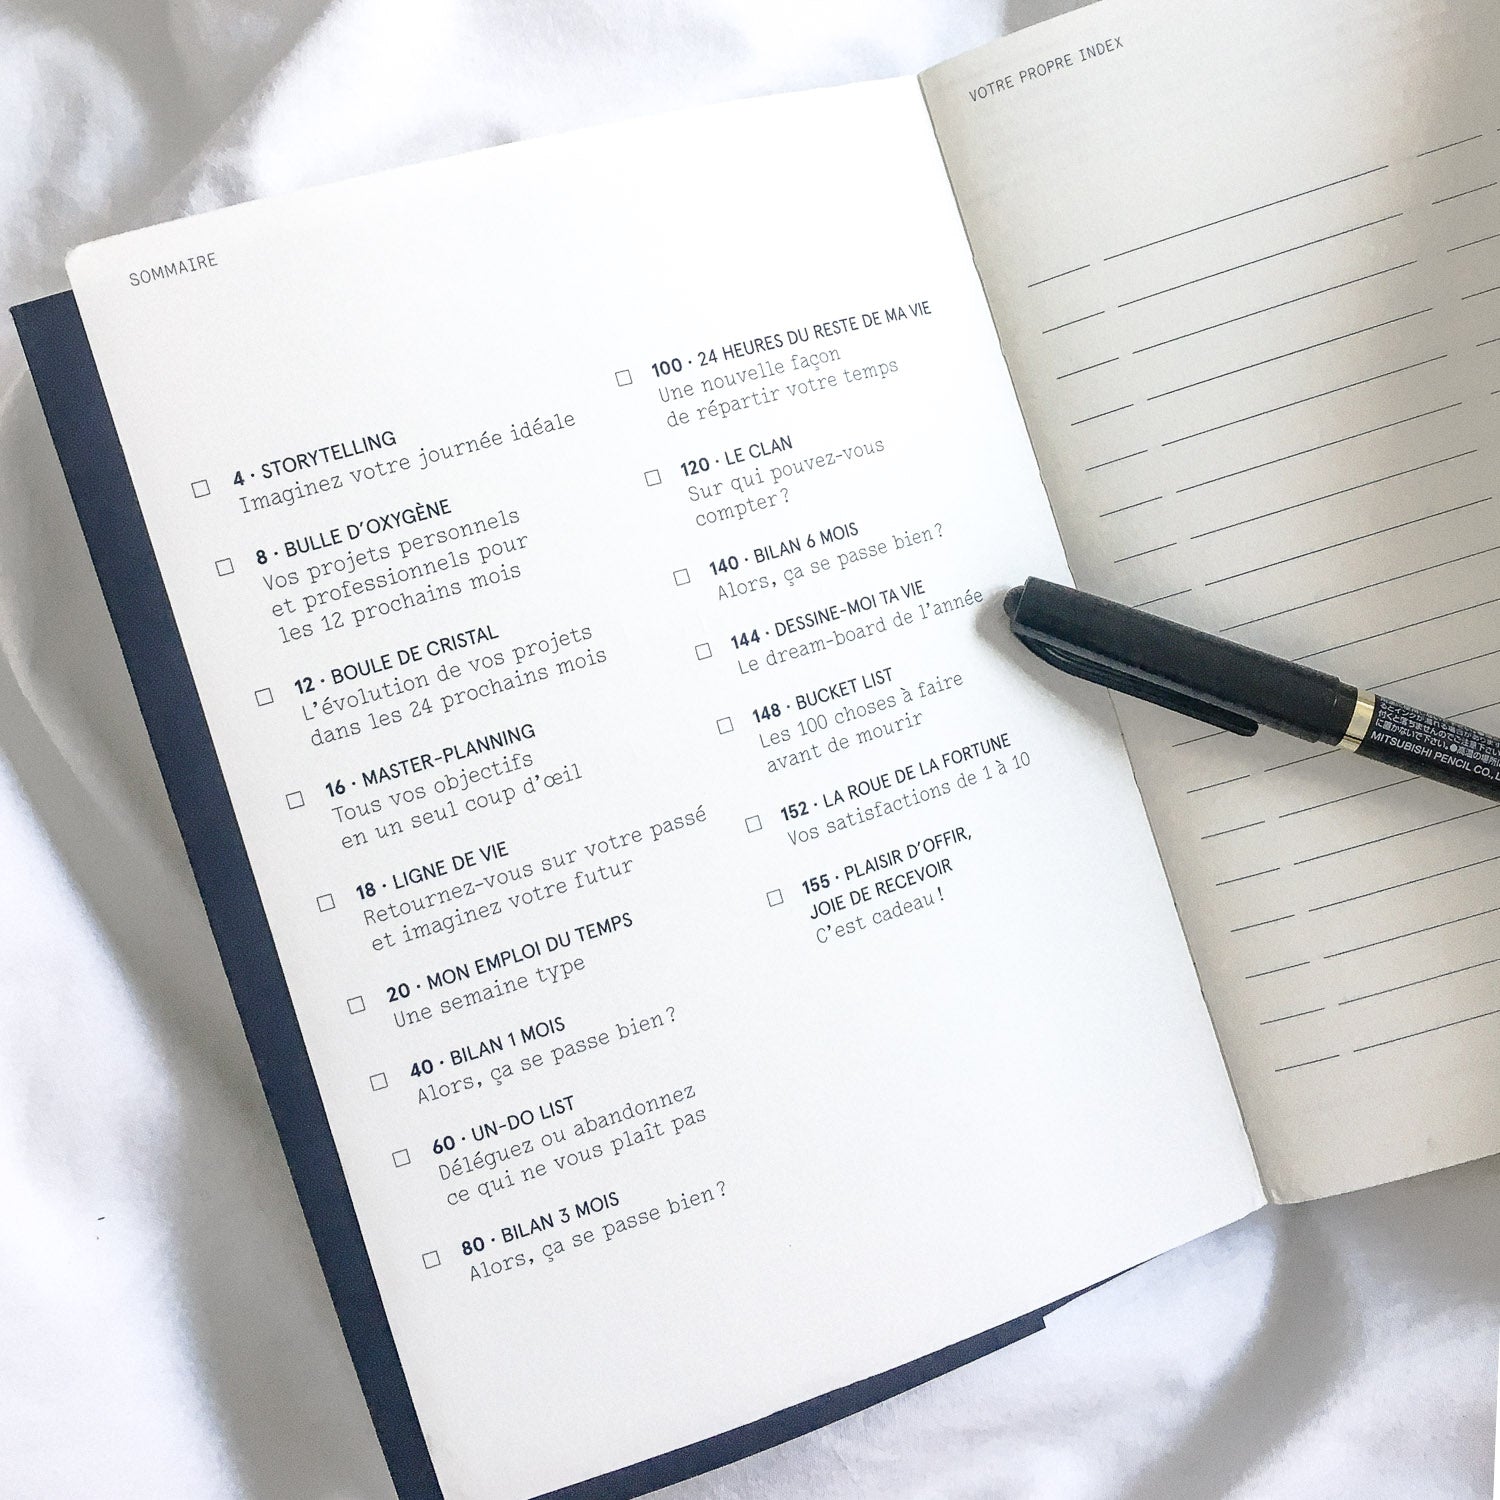 SOMMAIRE
4 · STORYTELLING
Imaginez votre journée idéale
8 · BULLE D'OXYGÈNE
Vos projets personnels
et professionnels pour
les 12 prochains mois
12 · BOULE DE CRISTAL
L'évolution de vos projets
dans les 24 prochains mois
16 · MASTER-PLANNING
Tous vos objectifs
en un seul coup d'œil
18 · LIGNE DE VIE
Retournez-vous sur votre passé
et imaginez votre futur
20 · MON EMPLOI DU TEMPS
Une semaine type
40 · BILAN 1 MOIS
Alors, ça se passe bien ?
60 · UN-DO LIST
Déléguez ou abandonnez
ce qui ne vous plaît pas
80 · BILAN 3 MOIS
Alors, ça se passe bien ?
100 · 24 HEURES DU RESTE DE MA VIE
Une nouvelle façon
de répartir votre temps
120 · LE CLAN
Sur qui pouvez-vous
compter ?
140 · BILAN 6 MOIS
Alors, ça se passe bien ?
144 · DESSINE-MOI TA VIE
Le dream-board de l'année
148 · BUCKET LIST
Les 100 choses à faire
avant de mourir
152 · LA ROUE DE LA FORTUNE
Vos satisfactions de 1 à 10
155 · PLAISIR D'OFFIR,
JOIE DE RECEVOIR
C'est cadeau !
VOTRE PROPRE INDEX
MITSUBISHI PENCIL CO.,